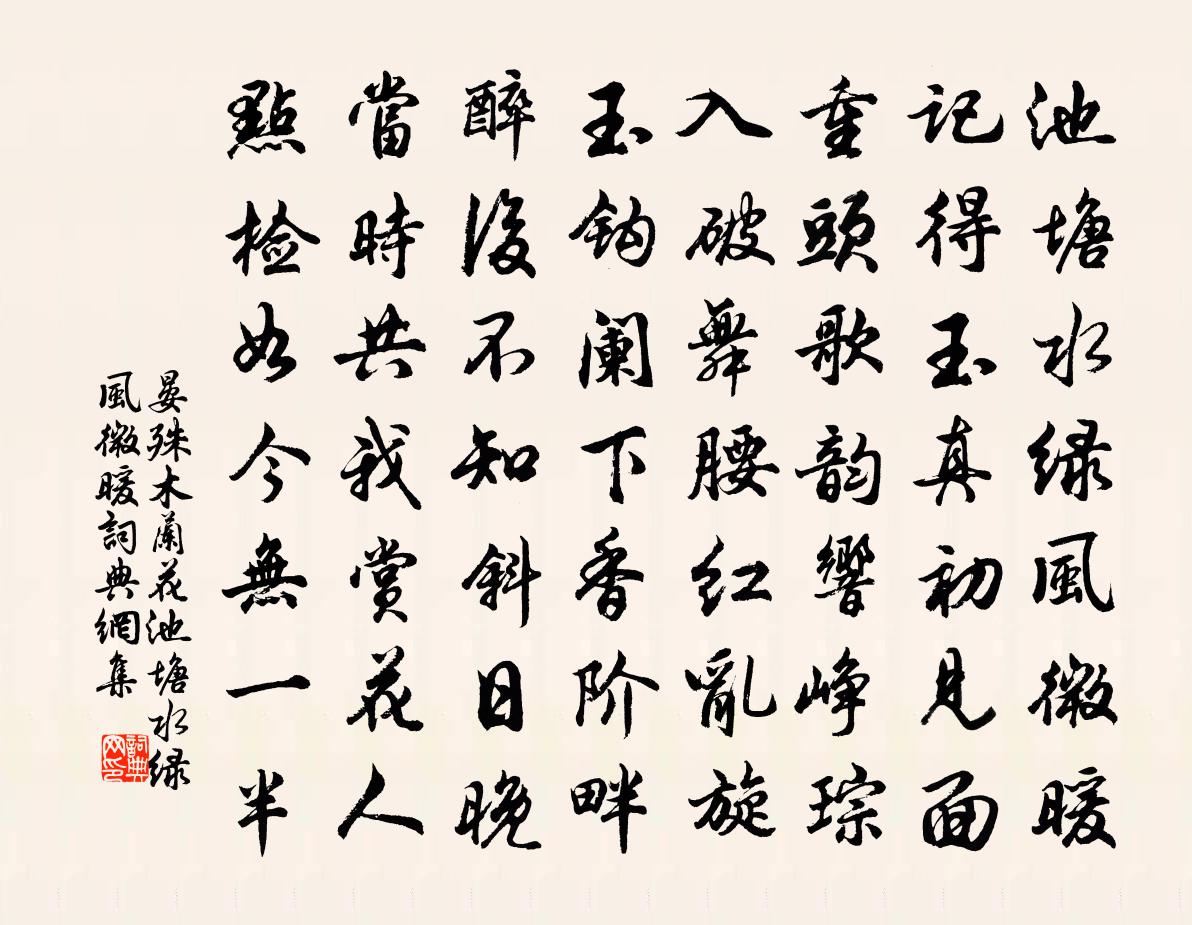 池塘水绿風微暖
記得玉真初見面
重頭歌韵響峥琮
入破舞腰红亂旋
玉钩阑下香阶畔
醉後不知斜日晚
當時共我賞花人
點檢如今無一半
晏殊木蘭花池塘水绿
風微暖詞典網集
詞典
网印